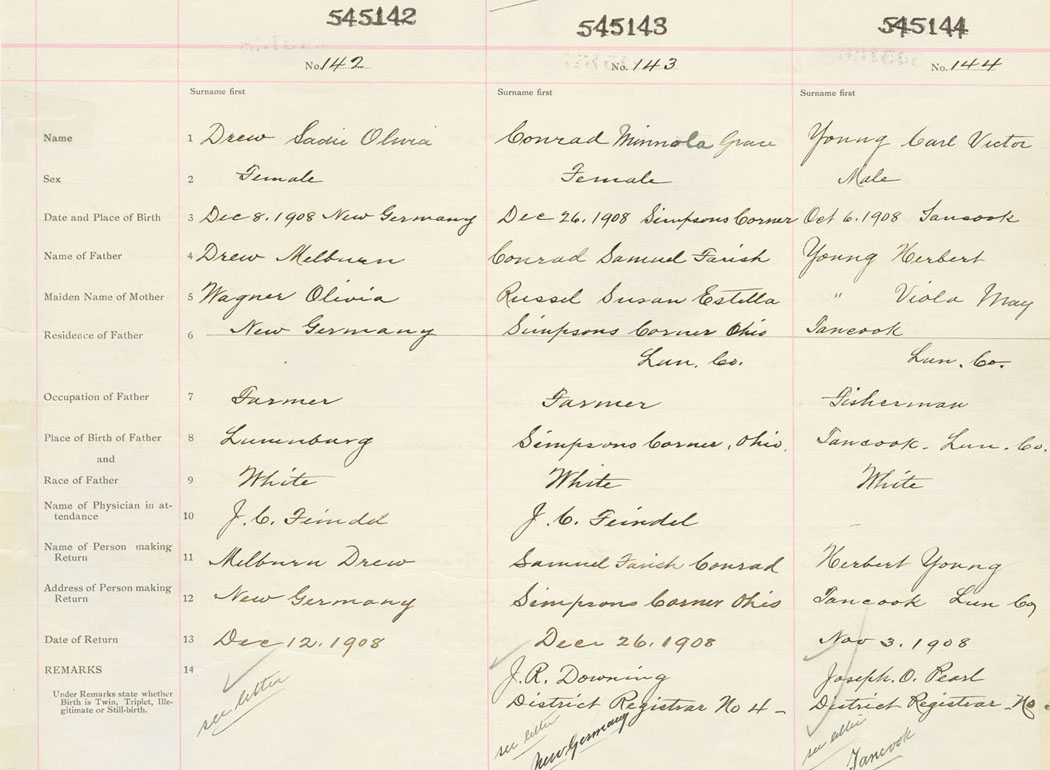 545142 545143 545144
No. 142 No. 143 No. 144
Surname first Surname first Surname first
Name 1 Drew Sadie Olivia Conrad Minnola Grace Young Carl Victor
Sex 2 Female Female Male
Date and Place of Birth 3 Dec 8. 1908 New Germany Dec 26. 1908 Simpsons Corner Oct 6. 1908 Tancook
Name of Father 4 Drew Melburn Conrad Samuel Farish Young Herbert
Maiden Name of Mother 5 Wagner Olivia Russel Susan Estella " Viola May
Residence of Father 6 New Germany Simpsons Corner Ohio Tancook
Lun. Co. Lun. Co.
Occupation of Father 7 Farmer Farmer Fisherman
Place of Birth of Father 8 Lunenburg Simpsons Corner, Ohio. Tancook. Lun. Co.
and
Race of Father 9 White White White
Name of Physician in at-
tendance 10 J. C. Feindel J. C. Feindel
Name of Person making
Return 11 Melburn Drew Samuel Farish Conrad Herbert Young
Address of Person making
Return 12 New Germany Simpsons Corner Ohio Tancook Lun Co
Date of Return 13 Dec 12. 1908 Dec 26. 1908 Nov 3. 1908
REMARKS 14 J. R. Downing Joseph. O. Pearl
Under Remarks state whether
Birth is Twin, Triplet, Ille-
gitimate or Still-birth.
District Registrar No 4 - District Registrar No
see letter see letter see letter
New Germany Tancook